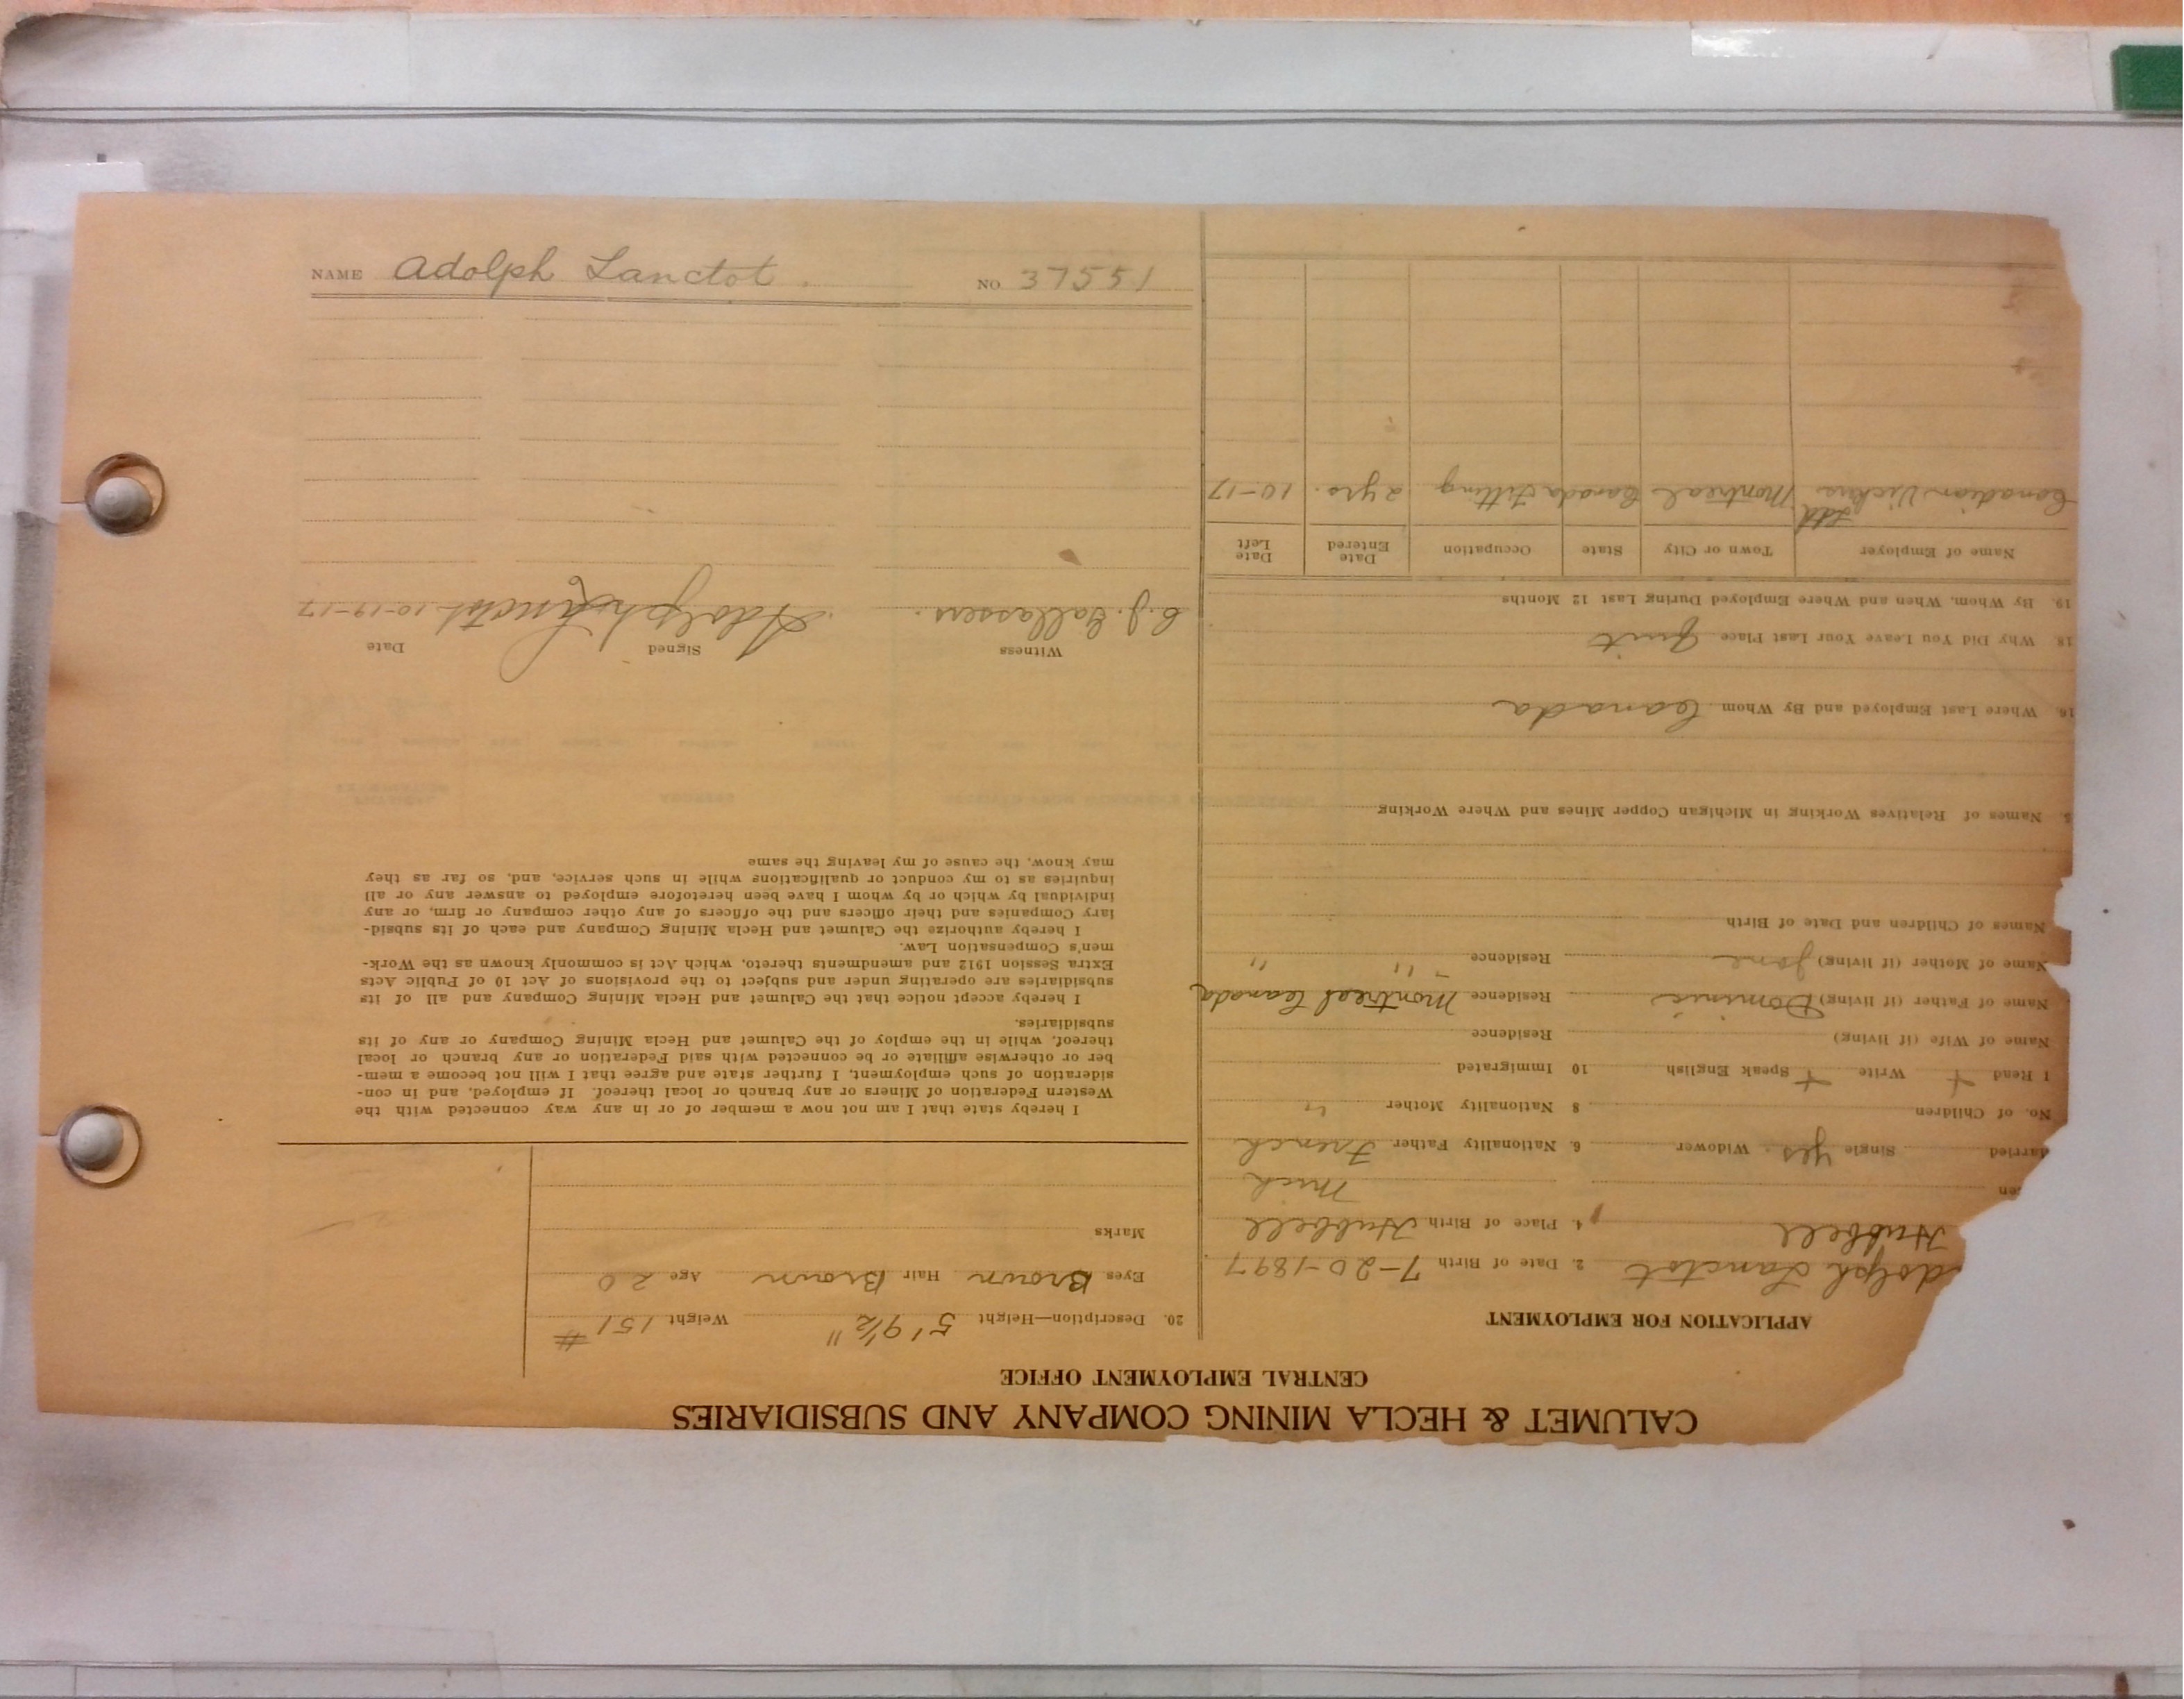 CALUMET & HECLA MINING COMPANY AND SUBSIDIARIES
CENTRAL EMPLOYMENT OFFICE
APPLICATION FOR EMPLOYMENT
dolph Lanctot 2. Date of Birth 7-20-1897
Hubbell 4. Place of Birth Hubbell
en Mich
arried Single yes. Widower 6. Nationality Father French
No. of Children 8 Nationality Mother "
I Read + Write + Speak English 10 Immigrated
Name of Wife (if living) Residence
Name of Father (if living) Dominic Residence Montreal Canada
Name of Mother (if living) Jane Residence " "
Names of Children and Date of Birth
5. Names of Relatives Working in Michigan Copper Mines and Where Working
16. Where Last Employed and By Whom Canada
18. Why Did You Leave Your Last Place Quit
19. By Whom, When and Where Employed During Last 12 Months
Name of Employer Town or City State Occupation Date Entered Date Left
Canadian Vickers Ltd Montreal Canada Fitting 2 yrs. 10-17
20. Description—Height 5' 9½" Weight 151 #
Eyes Brown Hair Brown Age 20
Marks
I hereby state that I am not now a member of or in any way connected with the
Western Federation of Miners or any branch or local thereof. If employed, and in con-
sideration of such employment, I further state and agree that I will not become a mem-
ber or otherwise affiliate or be connected with said Federation or any branch or local
thereof, while in the employ of the Calumet and Hecla Mining Company or any of its
subsidiaries.
I hereby accept notice that the Calumet and Hecla Mining Company and all of its
subsidiaries are operating under and subject to the provisions of Act 10 of Public Acts
Extra Session 1912 and amendments thereto, which Act is commonly known as the Work-
men's Compensation Law.
I hereby authorize the Calumet and Hecla Mining Company and each of its subsid-
iary Companies and their officers and the officers of any other company or firm, or any
individual by which or by whom I have been heretofore employed to answer any or all
inquiries as to my conduct or qualifications while in such service, and, so far as they
may know, the cause of my leaving the same
Witness Signed Date
C. J. Adolph Lanctot 10-19-17
NAME Adolph Lanctot. NO. 37551